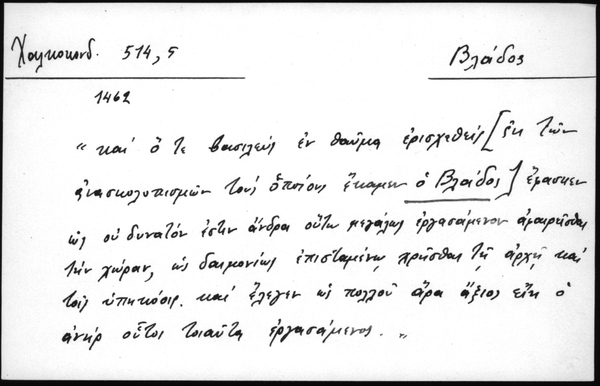 Χαλκοκονδ. 514,5
Βλάδος
1462
"καί ὅ τε βασιλεύς ἐν θαῦμα ἐρισχεθείς [ἐκ τῶν
ἀνασκολοπισμῶν τούς ὁποίους ἔκαμεν ὁ Βλάδος] ἔφασκεν
ὡς οὐ δυνατόν ἐστιν ἄνδρα οὕτω μεγάλως ἐργασάμενον ἀφαιρεῖσθαι
τήν χώραν, ὡς δαιμονίως ἐπισταμένῳ χρῆσθαι τῇ ἀρχῇ καί
τοῖς ὑπηκόοις. καί ἔλεγεν ὡς πολλοῦ ἄρα ἄξιος εἴη ὁ
ἀνήρ οὗτος τοιαῦτα ἐργασάμενος."